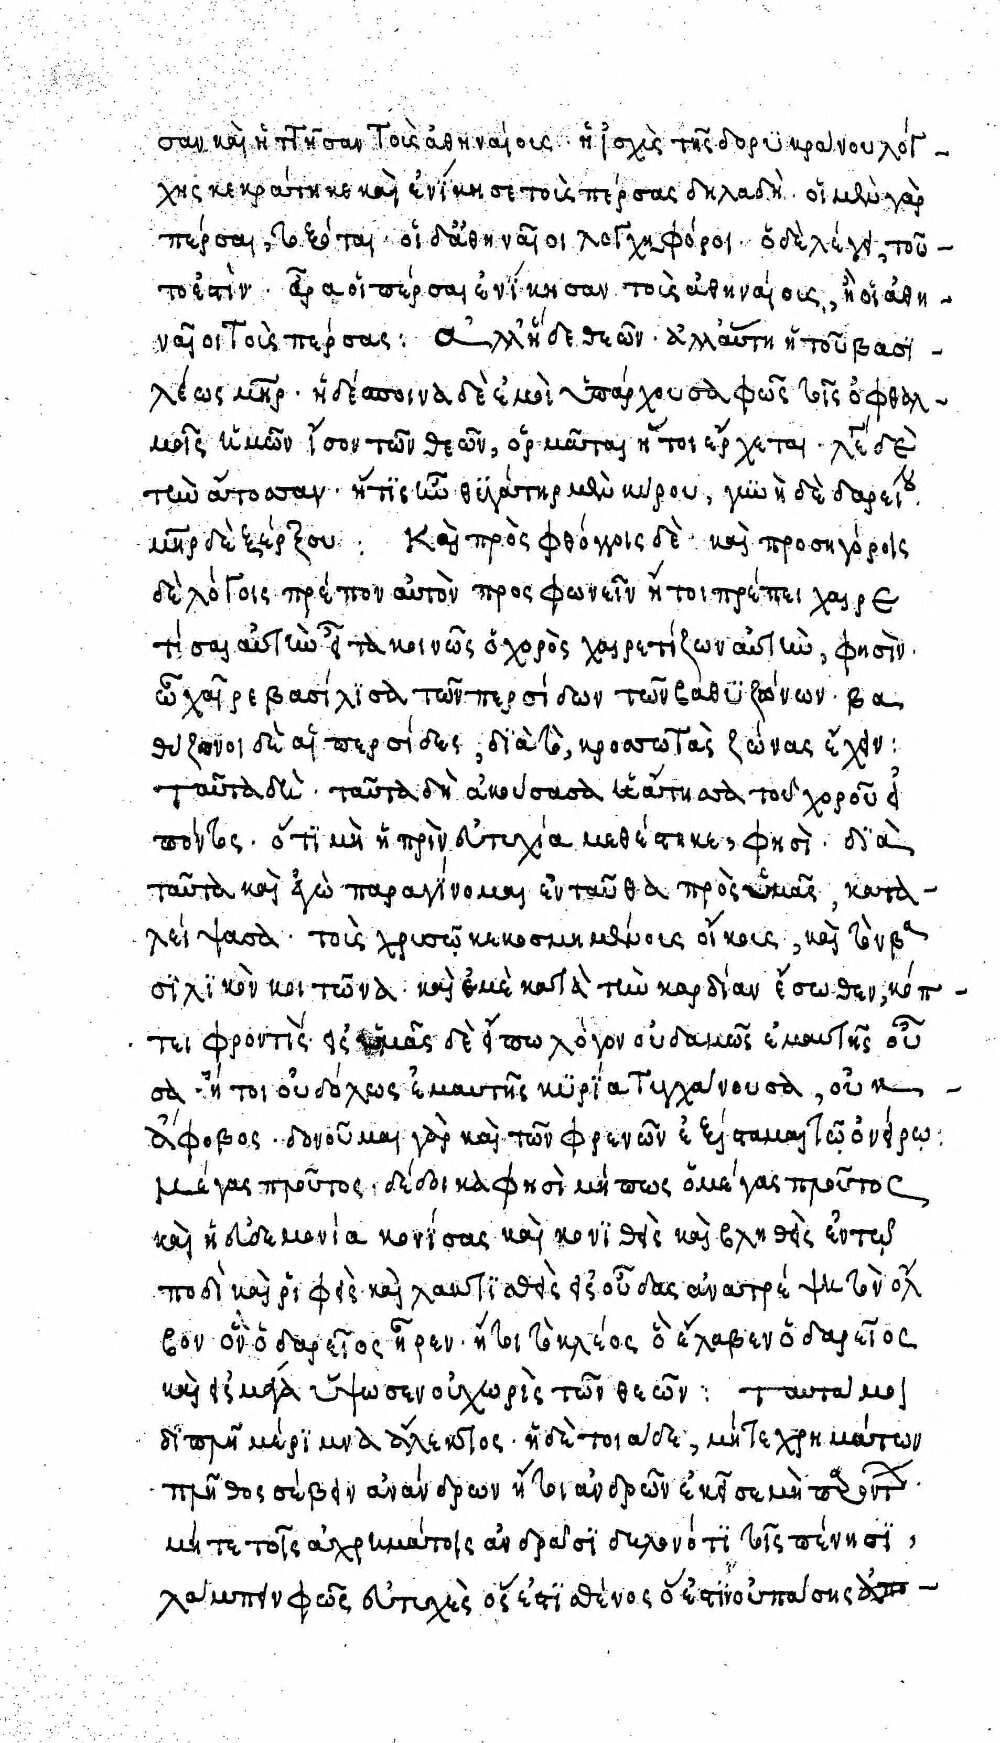 σαν καὶ ἡττήθησαν τοῖς ἀθηναίοις · ἢ ἰσχὺς τῆς δορυκράνου λόγ-
χης κεκράτηκε καὶ ἐνίκησε τοὺς πέρσας δηλαδή · οἱ μὲν γὰρ
πέρσαι, τοξόται · οἱ δ' ἀθηναῖοι λογχηφόροι · ὃ δὲ λέγει, τοῦ-
το ἐστίν · ἆρα οἱ πέρσαι ἐνίκησαν τοὺς ἀθηναίους, ἢ οἱ ἀθη-
ναῖοι τοὺς πέρσας : ἀλλ' ἥδε θεῶν · ἀλλ' αὕτη ἡ τοῦ βασι-
λέως μηρ · ἡ δέσποινα δὲ ἐμοὶ ὑπάρχουσα φῶς τοῖς ὀφθαλ-
μοῖς ἡμῶν ἴσον τῶν θεῶν, ὁρμᾶται ἤτοι ἔρχεται · λέγει δὲ
τὴν ἄτοσσαν · ἥτις ἦν θυγάτηρ μὲν κύρου, γυνὴ δὲ δαρείου
μηρ δὲ ξέρξου : Καὶ πρὸς φθόγγοις δὲ · καὶ προσηγόροις
δὲ λόγοις πρέπον αὐτὸν προσφωνεῖν ἤτοι πρέπει χαιρε
τίσαι αὐτήν εἶτα κοινῶς ὁ χορὸς χαιρετίζων αὐτήν, φησὶν ·
ὦ χαῖρε βασίλισσα τῶν περσίδων τῶν βαθυζώνων · βα
θύζωνοι δὲ αἱ περσίδες, διὰ τὸ, κροσσωτὰς ζώνας ἔχειν :
Ταῦτα δὴ · ταῦτα δὴ ἀκούσασα ἡ ἄτοσσα τοῦ χοροῦ εἰ
πόντος · ὅτι μὴ ἡ πρὶν εὐτυχία μεθέστηκε, φησὶ · διὰ
ταῦτα καὶ ἐγὼ παραγίνομαι ἐνταῦθα πρὸς ὑμᾶς, κατα-
λείψασα · τοὺς χρυσῷ κεκοσμημένους οἴκους, καὶ τὸν βα
σιλικὸν κοιτῶνα · καὶ ἐμὲ κατὰ τὴν καρδίαν ἔσωθεν, κόπ-
τει φροντίς · εἰς ὑμᾶς δὲ εἴπω λόγον οὐδαμῶς ἐμαυτῆς οὖ
σα · ἤτοι οὐδόλως ἐμαυτῆς κυρία τυγχάνουσα, οὐκ -
ἄφοβος · δονοῦμαι γὰρ καὶ τῶν φρενῶν ἐξίσταμαι τῷ ὀνείρῳ :
Μέγας πλοῦτος · δέδοικα φησὶ μήπως ὁ μέγας πλοῦτος
καὶ ἡ εὐδαιμονία κονίσας καὶ κονιθεὶς καὶ βληθεὶς ἐν τῷ
ποδὶ καὶ ῥιφθεὶς καὶ λακτισθεὶς εἰς οὖδας ἀναστρέψῃ τὸν ὄλ
βον ὃν ὁ δαρεῖος ἦρεν · ἤτοι τὸ κλέος ὃ ἔλαβεν ὁ δαρεῖος
καὶ εἰς μέγα ὕψωσεν οὐ χωρὶς τῶν θεῶν : Ταῦτά μοι
διπλῆ μέριμνα ἄλεκτος · ἡ δὲ τοιάδε, μήτε χρημάτων
πλῆθος σέβειν ἀνάνδρων ἤτοι ἀνδρῶν ἐκεῖσε μὴ παρόντων ·
μήτε τοῖς ἀχρημάτοις ἀνδράσι δηλονότι τοῖς πένησι,
λάμπειν φῶς εὐτυχὲς ὅσ ἐστι σθένος ὅ ἐστιν οὐ πάσης ἀπο-